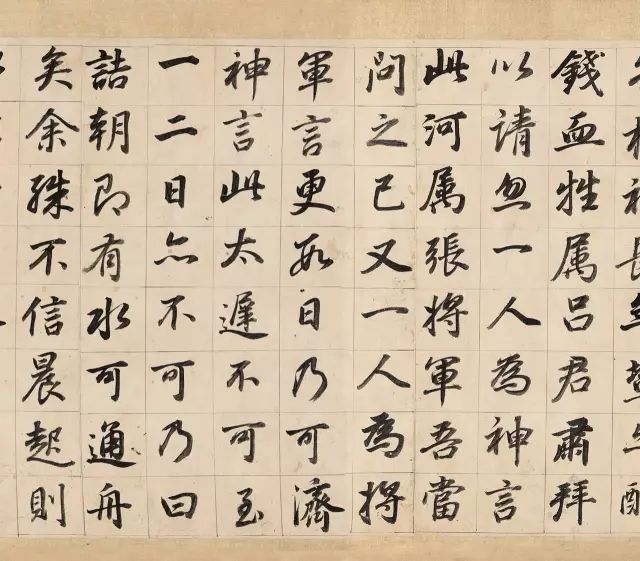 錢血牲属吕君肅拜
以請忽一人為神言
此河属張將軍吾當
問之已又一人為將
軍言更數日乃可濟
神言此太遲不可至
一二日亦不可乃曰
詰朝即有水可通舟
矣余殊不信晨起則